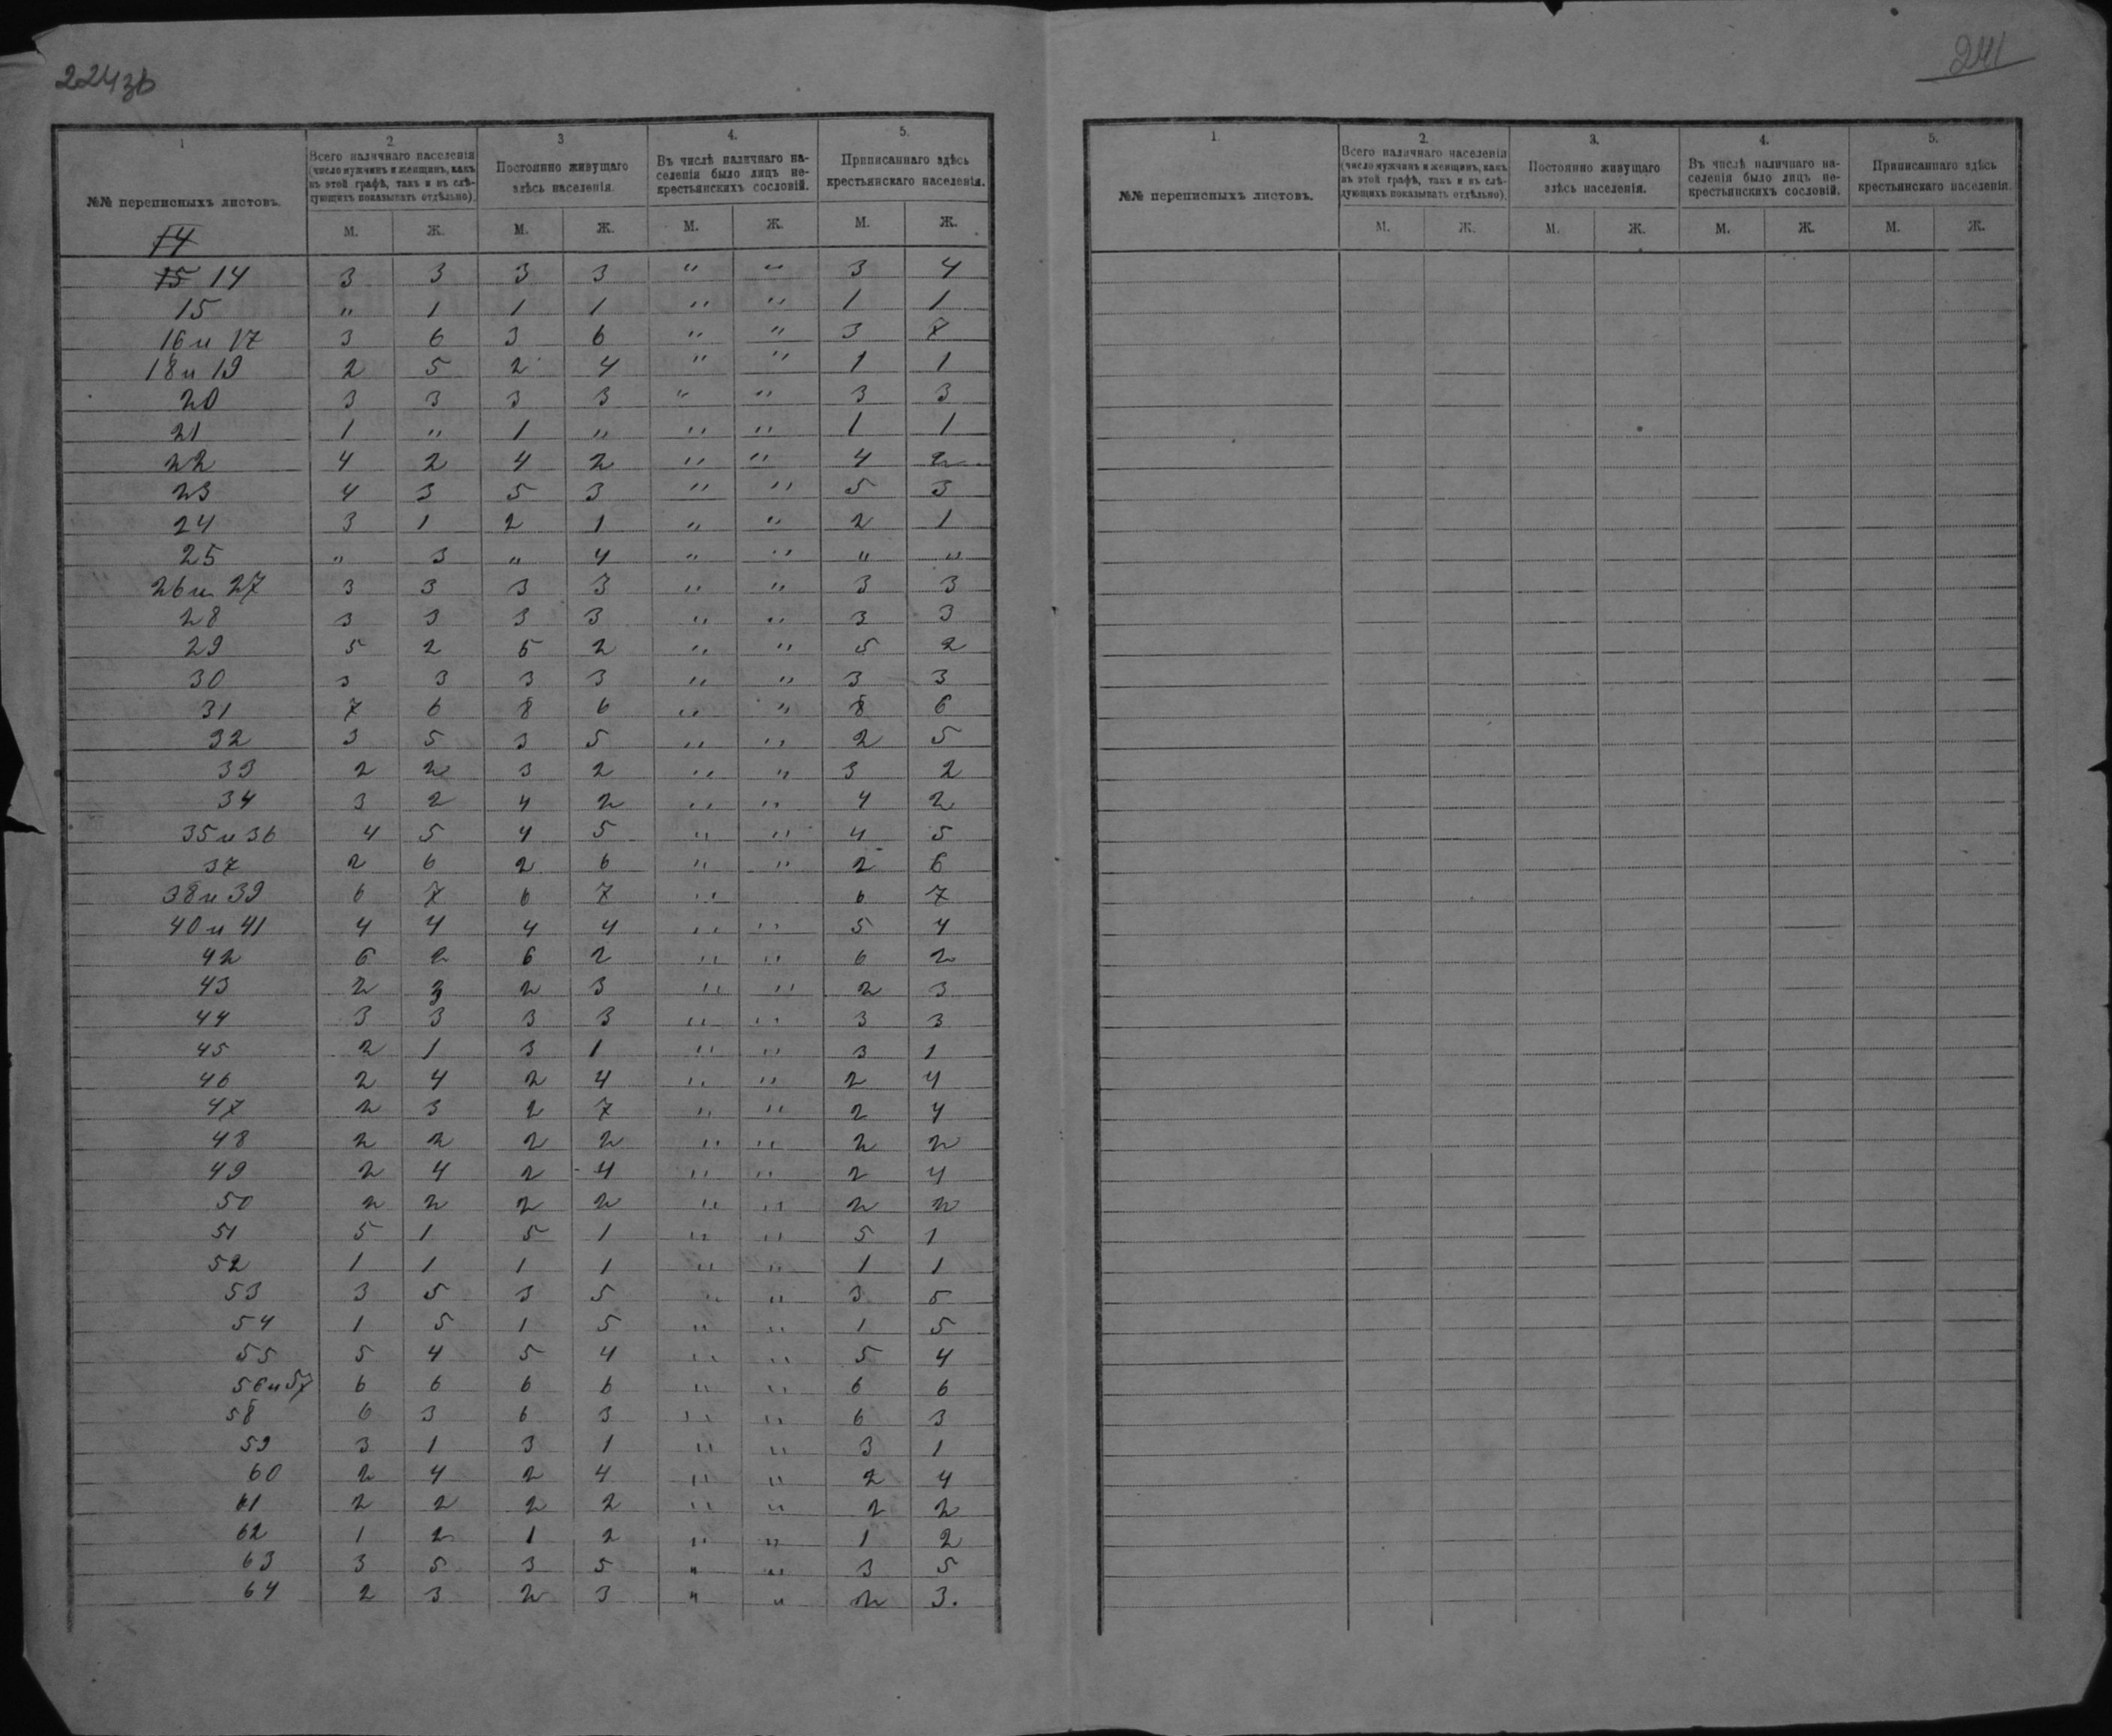 224зв
241
1
2
3
4.
5.
№№ переписныхъ листовъ.
Всего наличнаго населенія
(число мужчинъ и женщинъ, какъ
въ этой графѣ, такъ и въ слѣ-
дующихъ показывать отдѣльно).
Постоянно живущаго
здѣсь населенія.
Въ числѣ наличнаго на-
селенія было лицъ не-
крестьянскихъ сословій.
Приписаннаго здѣсь
крестьянскаго населенія.
М. Ж. М. Ж. М. Ж. М. Ж.
14
15 14 3 3 3 3 " " 3 4
15 " 1 1 1 " " 1 1
16 и 17 3 6 3 6 " " 3 7
18 и 19 2 5 2 4 " " 1 1
20 3 3 3 3 " " 3 3
21 1 " 1 " " " 1 1
22 4 2 4 2 " " 4 2
23 4 3 5 3 " " 5 3
24 3 1 2 1 " " 2 1
25 " 3 " 4 " " " "
26 и 27 3 3 3 3 " " 3 3
28 3 3 3 3 " " 3 3
29 5 2 5 2 " " 5 2
30 3 3 3 3 " " 3 3
31 7 6 8 6 " " 8 6
32 3 5 3 5 " " 2 5
33 2 2 3 2 " " 3 2
34 3 2 4 2 " " 4 2
35 и 36 4 5 4 5 " " 4 5
37 2 6 2 6 " " 2 6
38 и 39 6 7 6 7 " 6 7
40 и 41 4 4 4 4 " " 5 4
42 6 2 6 2 " " 6 2
43 2 3 2 3 " " 2 3
44 3 3 3 3 " " 3 3
45 2 1 3 1 " " 3 1
46 2 4 2 4 " " 2 4
47 2 3 2 7 " " 2 4
48 2 2 2 2 " " 2 2
49 2 4 2 4 " " 2 4
50 2 2 2 2 " " 2 2
51 5 1 5 1 " " 5 1
52 1 1 1 1 " " 1 1
53 3 5 3 5 " " 3 5
54 1 5 1 5 " " 1 5
55 5 4 5 4 " " 5 4
56 и 57 6 6 6 6 " " 6 6
58 6 3 6 3 " " 6 3
59 3 1 3 1 " " 3 1
60 2 4 2 4 " " 2 4
61 2 2 2 2 " " 2 2
62 1 2 1 2 " " 1 2
63 3 5 3 5 " " 3 5
64 2 3 2 3 " " 2 3.
1.
2.
3.
4.
5.
№№ переписныхъ листовъ.
Всего наличнаго населенія
(число мужчинъ и женщинъ, какъ
въ этой графѣ, такъ и въ слѣ-
дующихъ показывать отдѣльно).
Постоянно живущаго
здѣсь населенія.
Въ числѣ наличнаго на-
селенія было лицъ не-
крестьянскихъ сословій.
Приписаннаго здѣсь
крестьянскаго населенія.
М. Ж. М. Ж. М. Ж. М. Ж.